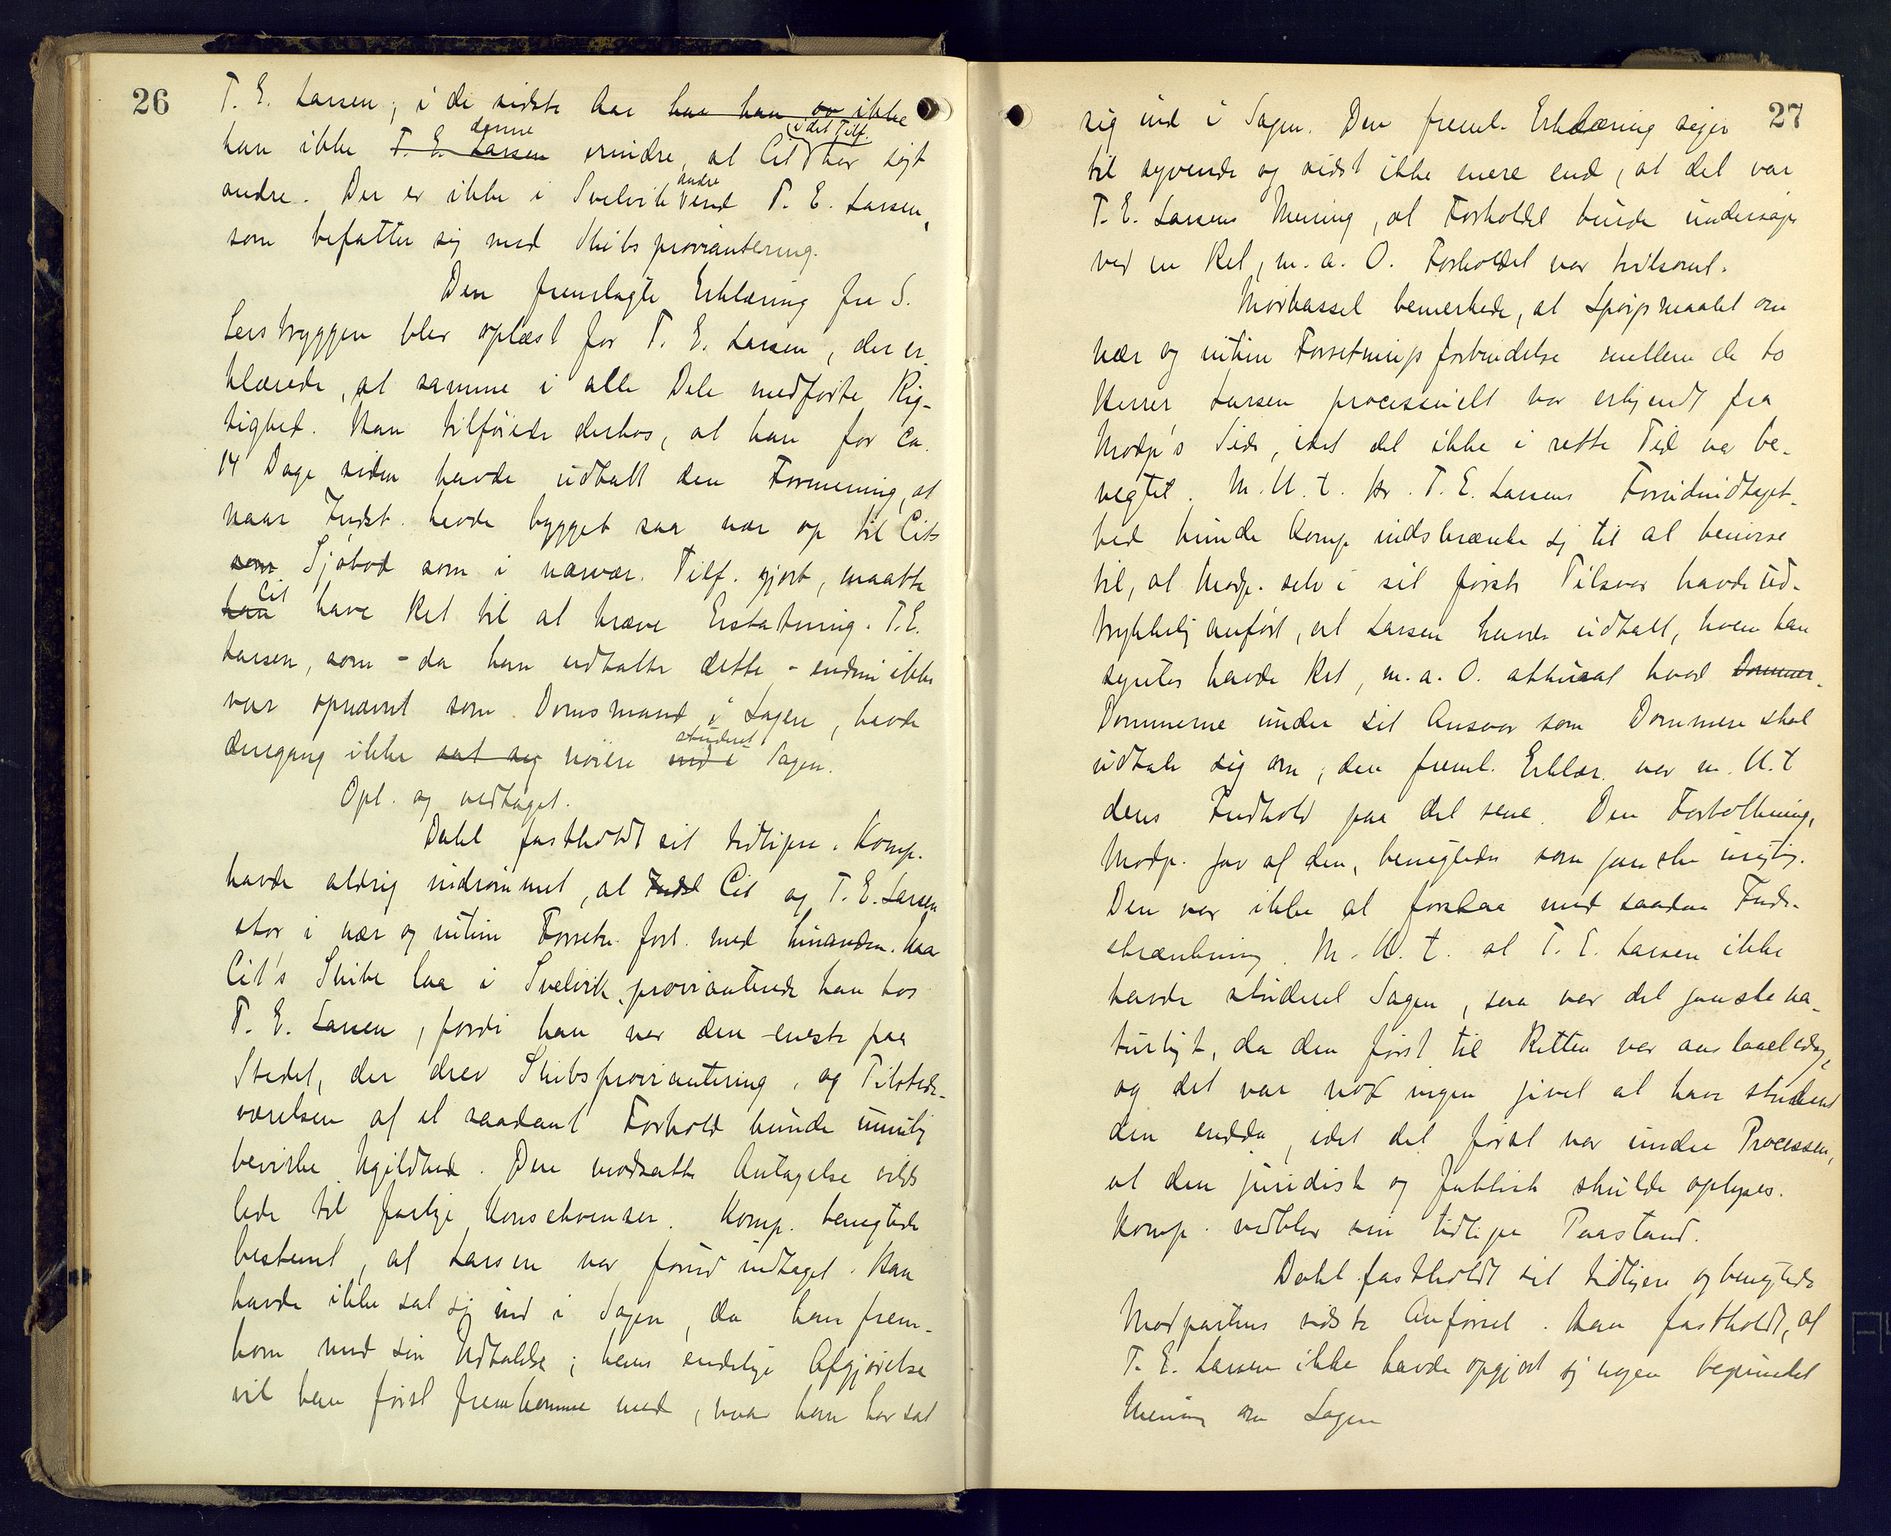 26
T. E. Larsen; i de sidste Aar har han ikke
kan ikke T. E. Larsen denne erindre, at Cit i det Tilf. har søgt
andre. Der er ikke i Svelvik andre end T. E. Larsen,
som befatter sig med Skibsproviantering.
Den fremlagte Erklæring fra S.
Leirbryggen blev oplæst for T. E. Larsen, der er-
klærede, at samme i alle Dele medførte Rig-
tighed. Han tilføiede derhos, at han for ca.
14 Dage siden havde udtalt den Formening, at
naar Indst. havde bygget saa nær op til Cits
som Sjøbod som i nærvær. Tilf. gjort, maatte
han Cit have Ret til at kræve Erstatning. T. E.
Larsen, som – da han udtalte dette – endnu ikke
var opnævnt som Domsmand i Sagen, havde
dengang ikke sat sig nøiere ind i studeret Sagen.
Opl. og vedtaget.
Dahl fastholdt sit tidligere. Komp.
havde aldrig indrømmet, at Indst Cit og T. E. Larsen
stod i nær og intim Forretn. forb. med hinanden. Naar
Cit's Skibe laa i Svelvik, provianterede han hos
T. E. Larsen, fordi han var den eneste paa
Stedet, der drev Skibsproviantering, og Tilstede-
værelsen af et saadant Forhold kunde umulig
bevirke Ugildhed. Den modsatte Antagelse vilde
lede til farlige Konsekvenser. Komp. benegtede
bestemt, at Larsen var forud indtaget. Han
havde ikke sat sig ind i Sagen, da han frem-
kom med sin Udtalelse; hans endelige Afgjørelse
vil han først fremkomme med, naar han har sat
27
sig ind i Sagen. Den freml. Erklæring siger
til syvende og sidst ikke mere end, at det var
T. E. Larsens Mening, at Forholdet burde undersøges
ved en Ret, m. a. O. Forholdet var tvilsomt.
Morbassel bemerkede, at Spørgsmaalet om
nær og intim Forretningsforbindelse mellem de to
Herrer Larsen processuelt var erkjendt fra
Modp's Side, idet det ikke i rette Tid var be-
negtet. M. H. t. Hr. T. E. Larsens Forudindtaget-
hed kunde Komp indskrænke sig til at henvise
til, at Modp. selv i sit første Tilsvar havde ud-
trykkelig anført, at Larsen havde udtalt, hvem han
syntes havde Ret, m. a. O. akkurat hvad Dommer-
Dommerne under sit Ansvar som Dommere skal
udtale sig om; den freml. Erklær. var m. H. t
dens Indhold paa det rene. Den Fortolkning,
Modp. gav af den, benegtedes som ganske urigtig.
Den var ikke at forstaa med saadan Ind-
skrænkning. M. H. t. at T. E. Larsen ikke
havde studeret Sagen, saa var det ganske na-
turligt, da den først til Retten var
og det var nok ingen givet at have studeret
den endda, idet det først var under Processen,
at den juridisk og faktisk skulde oplyses.
Komp. vedblev sin tidligere Paastand.
Dahl fastholdt sit tidligere og benegtede
Modpartens sidste Anførsel. Han fastholdt, at
T. E. Larsen ikke havde opgjort sig nogen begrundet
Mening om Sagen